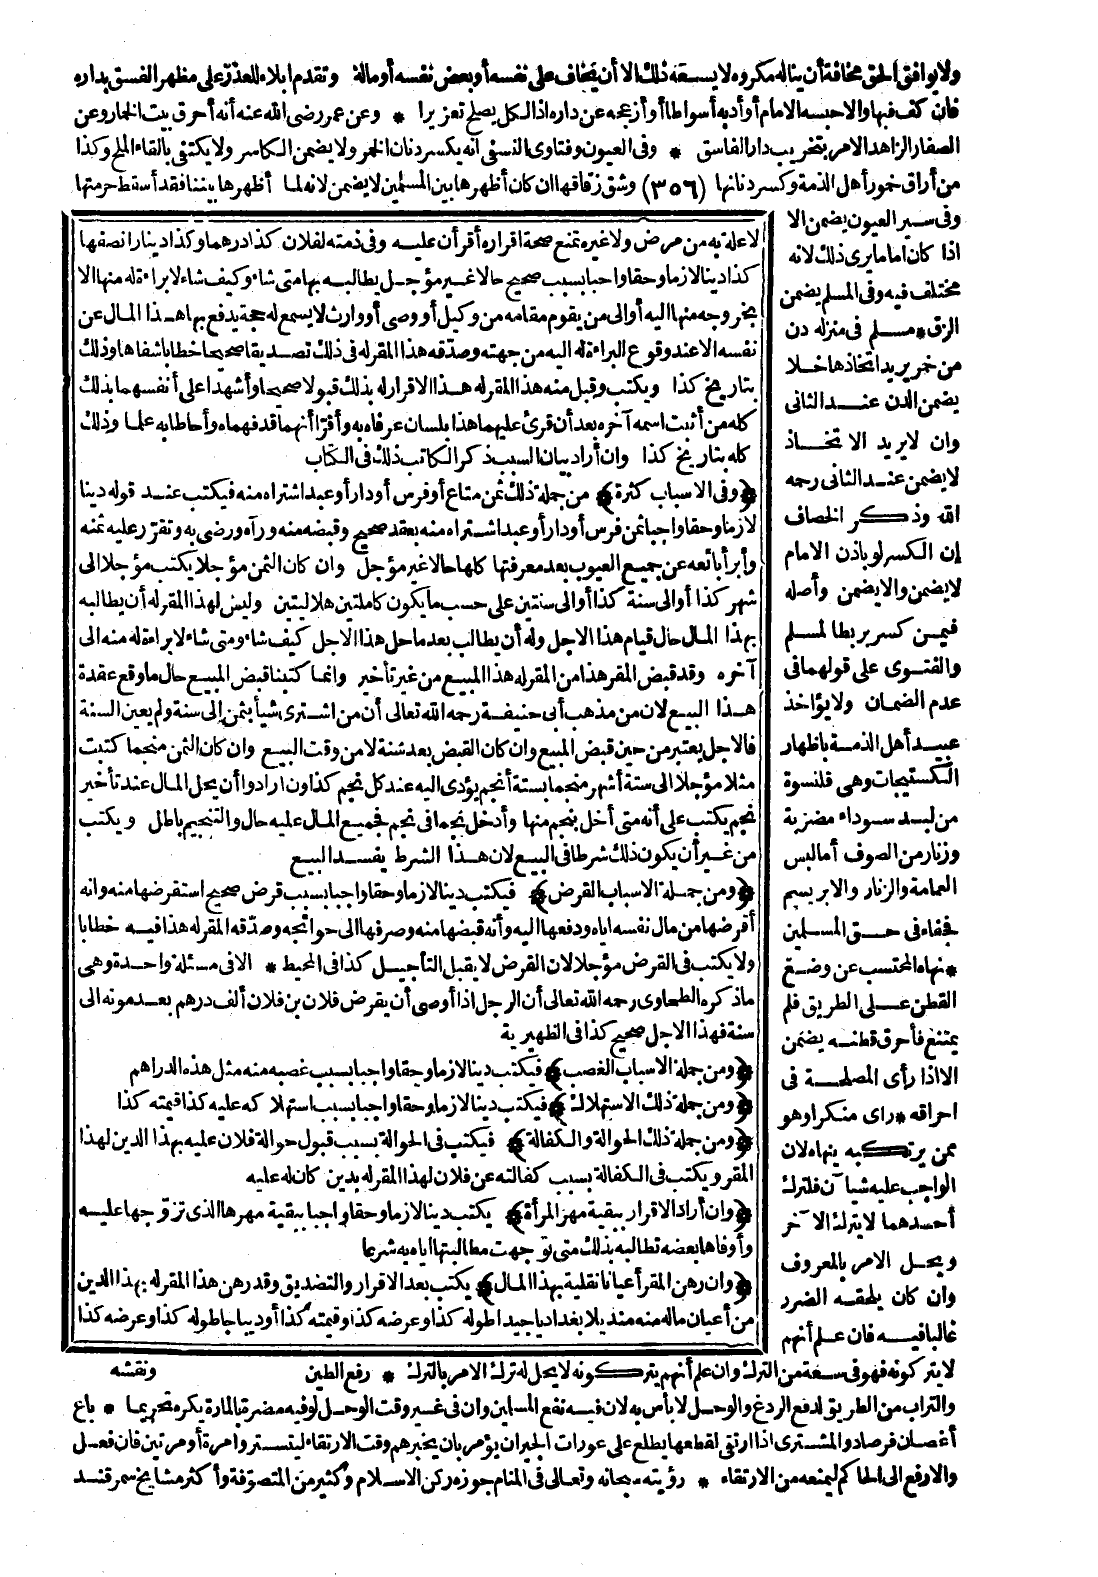 ولا يوافق الحق مخافة أن يناله مكروه لا يسعه ذلك الا أن يخاف على نفسه أو بعض نفسه أو ماله وتقدم ابلاء للعذر على مظهر الفسق بداره
فان كف فبها والا حبسه الامام أو أدبه أسواطا أو أزعجه عن داره اذ الكل يصلح تعزيرا * وعن عمر رضى الله عنه أنه أحرق بيت الخمار وعن
الصفار الزاهد الامر بتخريب دار الفاسق * وفى العيون وفتاوى النسفى انه يكسر دنان الخمر ولا يضمن الكاسر ولا يكتفى بالقاء الملح وكذا
من أراق خمور أهل الذمة وكسر دنانها (٣٥٦) وشق زقاقها ان كان أظهرها بين المسلمين لا يضمن لانه لما أظهرها بيننا فقد أسقط حرمتها
وفى سير العيون يضمن الا
اذا كان اماما يرى ذلك لانه
مختلف فيه وفى المسلم يضمن
الزق * مسلم فى منزله دن
من خمر يريد اتخاذها خلا
يضمن الدن عند الثانى
وان لا يريد الاتخاذ
لا يضمن عند الثانى رحمه
الله وذكر الخصاف
إن الكسر لو باذن الامام
لا يضمن والا يضمن وأصله
فيمن كسر بربطا لمسلم
والفتوى على قولهما فى
عدم الضمان ولا يؤاخذ
عبيد أهل الذمة باظهار
الكستيجات وهى قلنسوة
من لبد سوداء مضربة
وزنار من الصوف أما لبس
العمامة والزنار والابريسم
فجفاء فى حق المسلمين
* نهاه المحتسب عن وضع
القطن على الطريق فلم
يمتنع فأحرق قطنه يضمن
الا اذا رأى المصلحة فى
احراقه * رأى منكرا وهو
ممن يرتكبه ينهاه لان
الواجب عليه شيآن فلترك
أحدهما لا يترك الآخر
ويحل الامر بالمعروف
وان كان يلحقه الضرر
غالبا فيه فان علم أنهم
لا يتركونه فهو فى سعة من الترك وان علم أنهم يتركونه لا يحل له ترك الامر بالترك * رفع الطين ونقشه
والتراب من الطريق لدفع الردغ والوحل لا بأس به لان فيه نفع المسلمين وان فى غير وقت الوحل لو فيه مضرة بالمارة يكره تحريما * باع
أغصان فرصاد والمشترى اذا ارتقى لقطعها يطلع على عورات الجيران يؤمر بان يخبرهم وقت الارتقاء ليتستروا مرة أو مرتين فان فعل
والا رفع الى الحاكم ليمنعه من الارتقاء * رؤيته سبحانه وتعالى فى المنام جوزه ركن الاسلام وكثير من المتصوفة وأكثر مشايخ سمرقند
لا علة به من مرض ولا غيره تمنع صحة اقراره أقر أن عليه وفى ذمته لفلان كذا درهما وكذا دينارا نصفها
كذا دينا لازما وحقا واجبا بسبب صحيح حالا غير مؤجل يطالبه بها متى شاء وكيف شاء لا براءة له منها الا
بخروجه منها اليه أو الى من يقوم مقامه من وكيل أو وصى أو وارث لا يسمع له حجة يدفع بها هذا المال عن
نفسه الا عند وقوع البراءة له اليه من جهته وصدقه هذا المقر له فى ذلك تصديقا صحيحا خطابا شفاها وذلك
بتاريخ كذا ويكتب وقبل منه هذا المقر له هذا الاقرار له بذلك قبولا صحيحا وأشهدا على أنفسهما بذلك
كله من أثبت اسمه آخره بعد أن قرئ عليهما هذا بلسان عرفاه به وأقرا أنهما قد فهماه وأحاطا به علما وذلك
كله بتاريخ كذا وان أراد بيان السبب ذكر الكاتب ذلك فى الكتاب
﴿وفى الاسباب كثرة﴾ من جملة ذلك ثمن متاع أو فرس أو دار أو عبد اشتراه منه فيكتب عند قوله دينا
لازما وحقا واجبا ثمن فرس أو دار أو عبد اشتراه منه بعقد صحيح وقبضه منه ورآه ورضى به وتقرر عليه ثمنه
وأبرأ بائعه عن جميع العيوب بعد معرفتها كلها حالا غير مؤجل وان كان الثمن مؤجلا يكتب مؤجلا الى
شهر كذا أو الى سنة كذا أو الى سنتين على حسب ما يكون كاملتين هلاليتين وليس لهذا المقر له أن يطالبه
بهذا المال حال قيام هذا الاجل وله أن يطالب بعد ما حل هذا الاجل كيف شاء ومتى شاء لا براءة له منه الى
آخره وقد قبض المقر هذا من المقر له هذا المبيع من غير تأخير وانما كتبنا قبض المبيع حال ما وقع عقدة
هذا البيع لان من مذهب أبى حنيفة رحمه الله تعالى أن من اشترى شيأ بثمن إلى سنة ولم يعين السنة
فالاجل يعتبر من حين قبض المبيع وان كان القبض بعد سنة لا من وقت البيع وان كان الثمن منجما كتبت
مثلا مؤجلا الى ستة أشهر منجما بستة أنجم يؤدى اليه عند كل نجم كذا وان ارادوا أن يحل المال عند تأخير
نجم يكتب على أنه متى أخل بنجم منها وأدخل نجما فى نجم فجميع المال عليه حال والتنجيم باطل ويكتب
من غير أن يكون ذلك شرطا فى البيع لان هذا الشرط يفسد البيع
﴿ومن جملة الاسباب القرض﴾ فيكتب دينا لازما وحقا واجبا بسبب قرض صحيح استقرضها منه وانه
أقرضها من مال نفسه اياه ودفعها اليه وأنه قبضها منه وصرفها الى حوائجه وصدقه المقر له هذا فيه خطابا
ولا يكتب فى القرض مؤجلا لان القرض لا يقبل التأجيل كذا فى المحيط * الا فى مسئلة واحدة وهى
ما ذكره الطحاوى رحمه الله تعالى أن الرجل اذا أوصى أن يقرض فلان بن فلان ألف درهم بعد موته الى
سنة فهذا الاجل صحيح كذا فى الظهيرية
﴿ومن جملة الاسباب الغصب﴾ فيكتب دينا لازما وحقا واجبا بسبب غصبه منه مثل هذه الدراهم
﴿ومن جملة ذلك الاستهلاك﴾ فيكتب دينا لازما وحقا واجبا بسبب استهلاكه عليه كذا قيمته كذا
﴿ومن جملة ذلك الحوالة والكفالة﴾ فيكتب فى الحوالة بسبب قبول حوالة فلان عليه بهذا الدين لهذا
المقر ويكتب فى الكفالة بسبب كفالته عن فلان لهذا المقر له بدين كان له عليه
﴿وان أراد الاقرار ببقية مهر المرأة﴾ يكتب دينا لازما وحقا واجبا ببقية مهرها الذى تزوجها عليه
وأوفاها بعضه تطالبه بذلك متى توجهت مطالبتها اياه به شرعا
﴿وان رهن المقر أعيانا نقلية بهذا المال﴾ يكتب بعد الاقرار والتصديق وقد رهن هذا المقر له بهذا الدين
من أعيان ماله منه منديلا بغداديا جيدا طوله كذا وعرضه كذا وقيمته كذا أو ديباجا طوله كذا وعرضه كذا